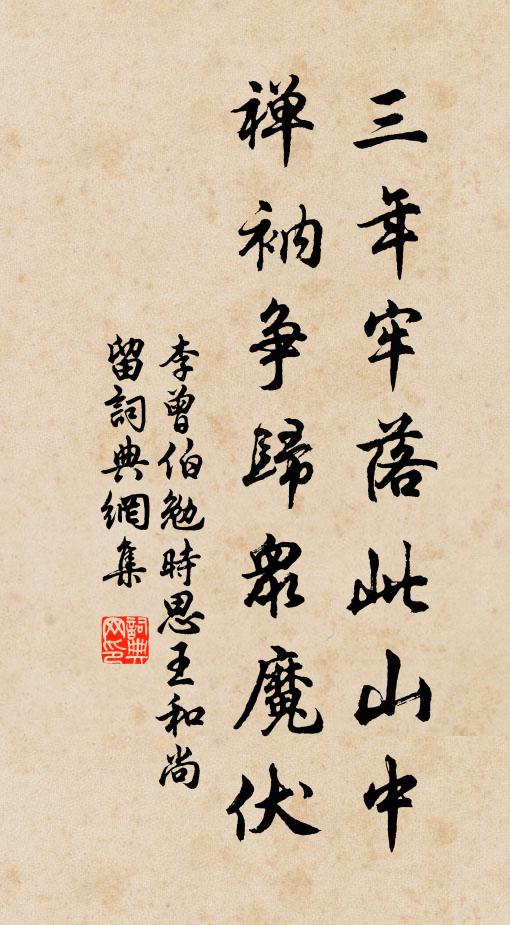 三年牢落此山中
禅衲争歸眾魔伏
李曾伯勉時思王和尚
留詞典網集
詞典網印